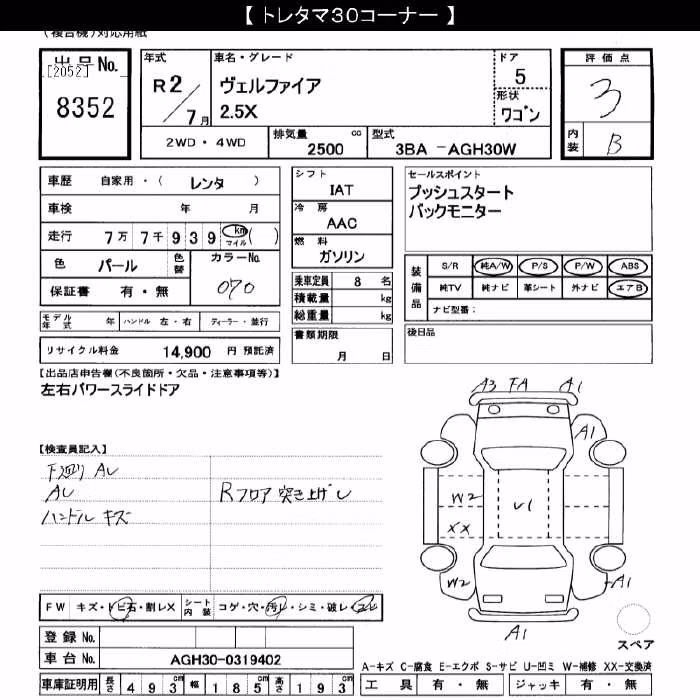 【 トレタマ30コーナー 】
(複合機)対応用紙
出品No.
[2052]
8352
年式
R2/7月
車名・グレード
ヴェルファイア
2.5X
ドア
5
形状
ワゴン
評価点
3
内装
B
2WD・4WD
排気量 cc
2500
型式
3BA －AGH30W
車歴 自家用・( レンタ )
車検 年 月
走行 7万 7千 9 3 9 km マイル ( )
色 パール 色替
カラーNo.
070
保証書 有・無
シフト
IAT
冷房
AAC
燃料
ガソリン
乗車定員 8 名
積載量 kg
総重量 kg
書類期限
月 日
セールスポイント
プッシュスタート
バックモニター
装備品
S/R 純A/W P/S P/W ABS
純TV 純ナビ 革シート 外ナビ エアB
ナビ型番：
後日品
モデル年式 年 ハンドル 左・右 ディーラー・並行
リサイクル料金 14,900 円 預託済
【出品店申告欄(不良箇所・欠品・注意事項等)】
左右パワースライドドア
【検査員記入】
下廻り AU
AU
ハンドル キズ
Rフロア 突き上げ し
A3 FA A1
A1
W2
XX
U1
W2
A1
A1
スペア
FW キズ・トビ石・割レX シート内装 コゲ・穴・汚レ・シミ・破レ・スレ
登録No.
車台No. AGH30-0319402
車庫証明用 長さ 4 9 3 cm 幅 1 8 5 cm 高さ 1 9 3 cm
A-キズ C-腐食 E-エクボ S-サビ U-凹ミ W-補修 XX-交換済
工具 有・無 ジャッキ 有・無